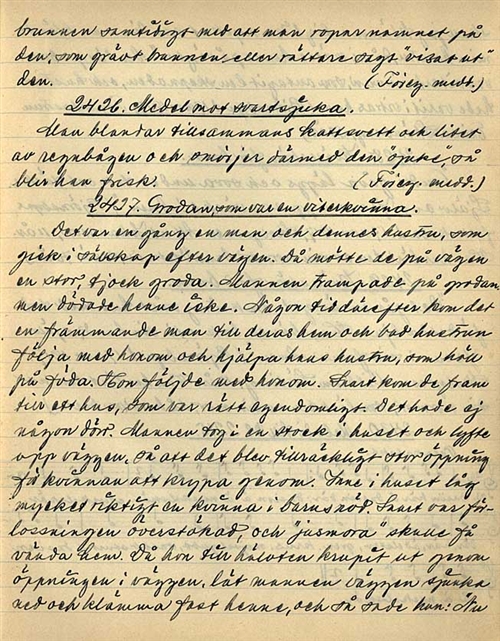 brunnen samtidigt med att man ropar namnet på
den, som grävt brunnen eller rättare sagt "visat ut"
den. (Föreg. medd.)
2426. Medel mot svartsjuka.
Man blandar tillsammans kattsvett och litet
av regnbågen och smörjer därmed den "sjuke", så
blir han frisk. (Föreg. medd.)
2427. Grodan, som var en viterkvinna.
Det var en gång en man och dennes hustru, som
gick i sävskap efter vägen. Då mötte de på vägen
en stor, tjock groda. Mannen trampade på grodan
men dödade henne icke. Någon tid därefter kom det
en främmande man till deras hem och bad hustrun
följa med honom och hjälpa hans hustru, som höll
på föda. Hon följde med honom. Snart kom de fram
till ett hus, som var rätt egendomligt. Det hade ej
någon dörr. Mannen tog i en stock i huset och lyfte
upp väggen, så att det blev tillräckligt stor öppning
för kvinnan att krypa genom. Inne i huset låg
mycket riktigt en kvinna i barnsnöd. Snart var för-
lossningen överstökad, och "jusmora" skulle få
vända hem. Då hon till hälvten krupit ut genom
öppningen i väggen, lät mannen väggen sjunka
ned och klämma fast henne, och så sade han: "Nu